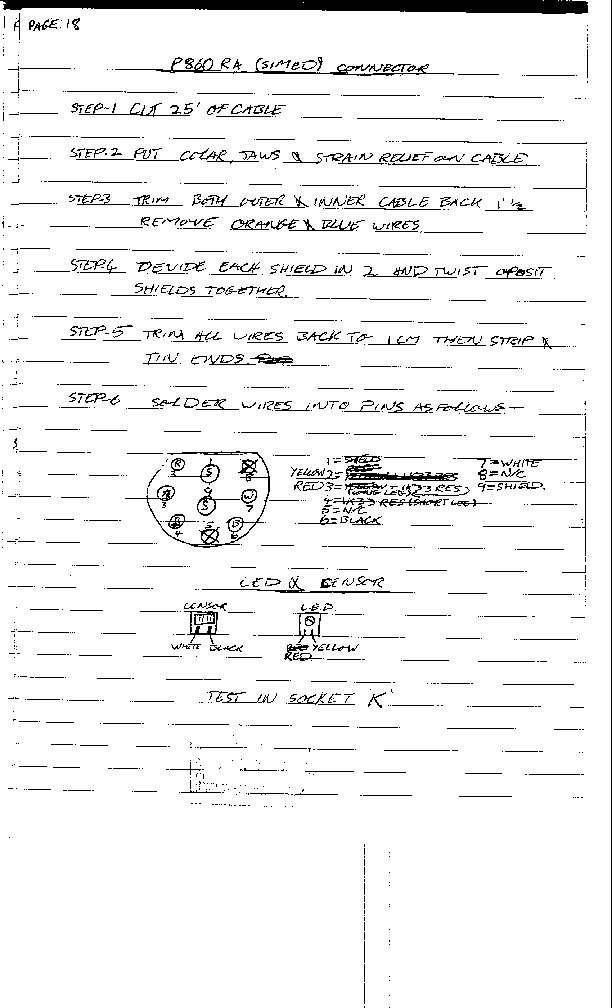 PAGE: 18
P860 RA (SIMED) CONNECTOR
STEP-1 CUT 25' OF CABLE
STEP-2 PUT COLAR, JAWS & STRAIN RELIEF ON CABLE
STEP-3 TRIM BOTH OUTER & INNER CABLE BACK 1 1/2
REMOVE ORANGE & BLUE WIRES
STEP-4 DEVIDE EACH SHIELD IN 2 AND TWIST OPOSIT
SHIELDS TOGETHER.
STEP-5 TRIM ALL WIRES BACK TO 1 CM THEN STRIP &
TIN ENDS
STEP-6 SOLDER WIRES INTO PINS AS FOLLOWS -
R
2
1
S
8
3
9
S
W
7
4
5
B
6
1 = SHIELD
YELLOW 2 =
RED 3 =
5 = N/C
6 = BLACK
7 = WHITE
8 = N/C
9 = SHIELD.
LED & SENSOR
SENSOR
WHITE BLACK
L.E.D
YELLOW
RED
TEST IN SOCKET K